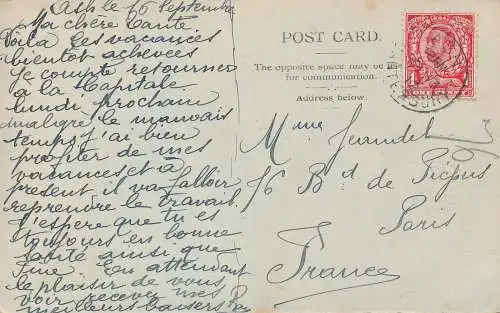 le 16 Septembre
Ma chère Tante,
Voilà les vacances
bientot achevées
je compte retourner
à la Capitale
lundi prochain
malgré le mauvais
temps j'ai bien
profiter de mes
vacances et à
présent il va falloir
reprendre le travail.
J'espère que tu es
toujours en bonne
santé ainsi que
En attendant
le plaisir de vous
voir recevez mes
meilleurs baisers
POST CARD.
The opposite space may be
for communication.
Address below.
Mme Jeandel
16 Bd de Picpus
Paris
France